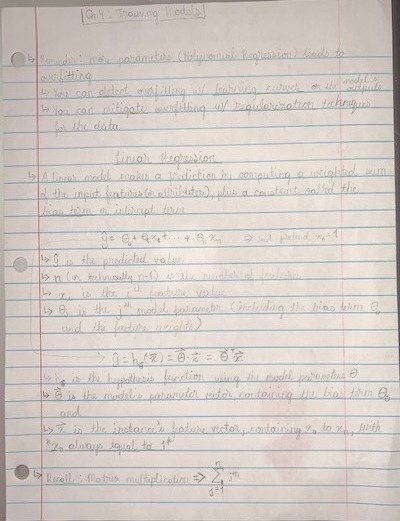 Ch.4: Training Models
↳ Reminder: more parameters (Polynomial Regression) leads to
overfitting
↳ You can detect overfitting w/ learning curves on the model's outputs
↳ You can mitigate overfitting w/ regularization techniques
for the data
Linear Regression
↳ A linear model makes a prediction by computing a weighted sum
of the input features (or attributes), plus a constant called the
bias term or intercept term
ŷ = θ₀ + θ₁x₁ + ... + θₙxₙ ⇒ just pretend x₀ = 1
↳ ŷ is the predicted value
↳ n (or technically n-1) is the number of features
↳ xᵢ is the iᵗʰ feature value
↳ θⱼ is the jᵗʰ model parameter (including the bias term θ₀
and the feature weights)
↳ ŷ = h_θ(x⃗) = θ⃗ · x⃗ = θ⃗ᵀx⃗
↳ h_θ is the hypothesis function using the model parameters θ
↳ θ⃗ is the model's parameter vector containing the bias term θ₀
and
↳ x⃗ is the instance's feature vector, containing x₀ to xₙ, with
*x₀ always equal to 1*
↳ Recall: Matrix multiplication ⇒ n ∑ j=1